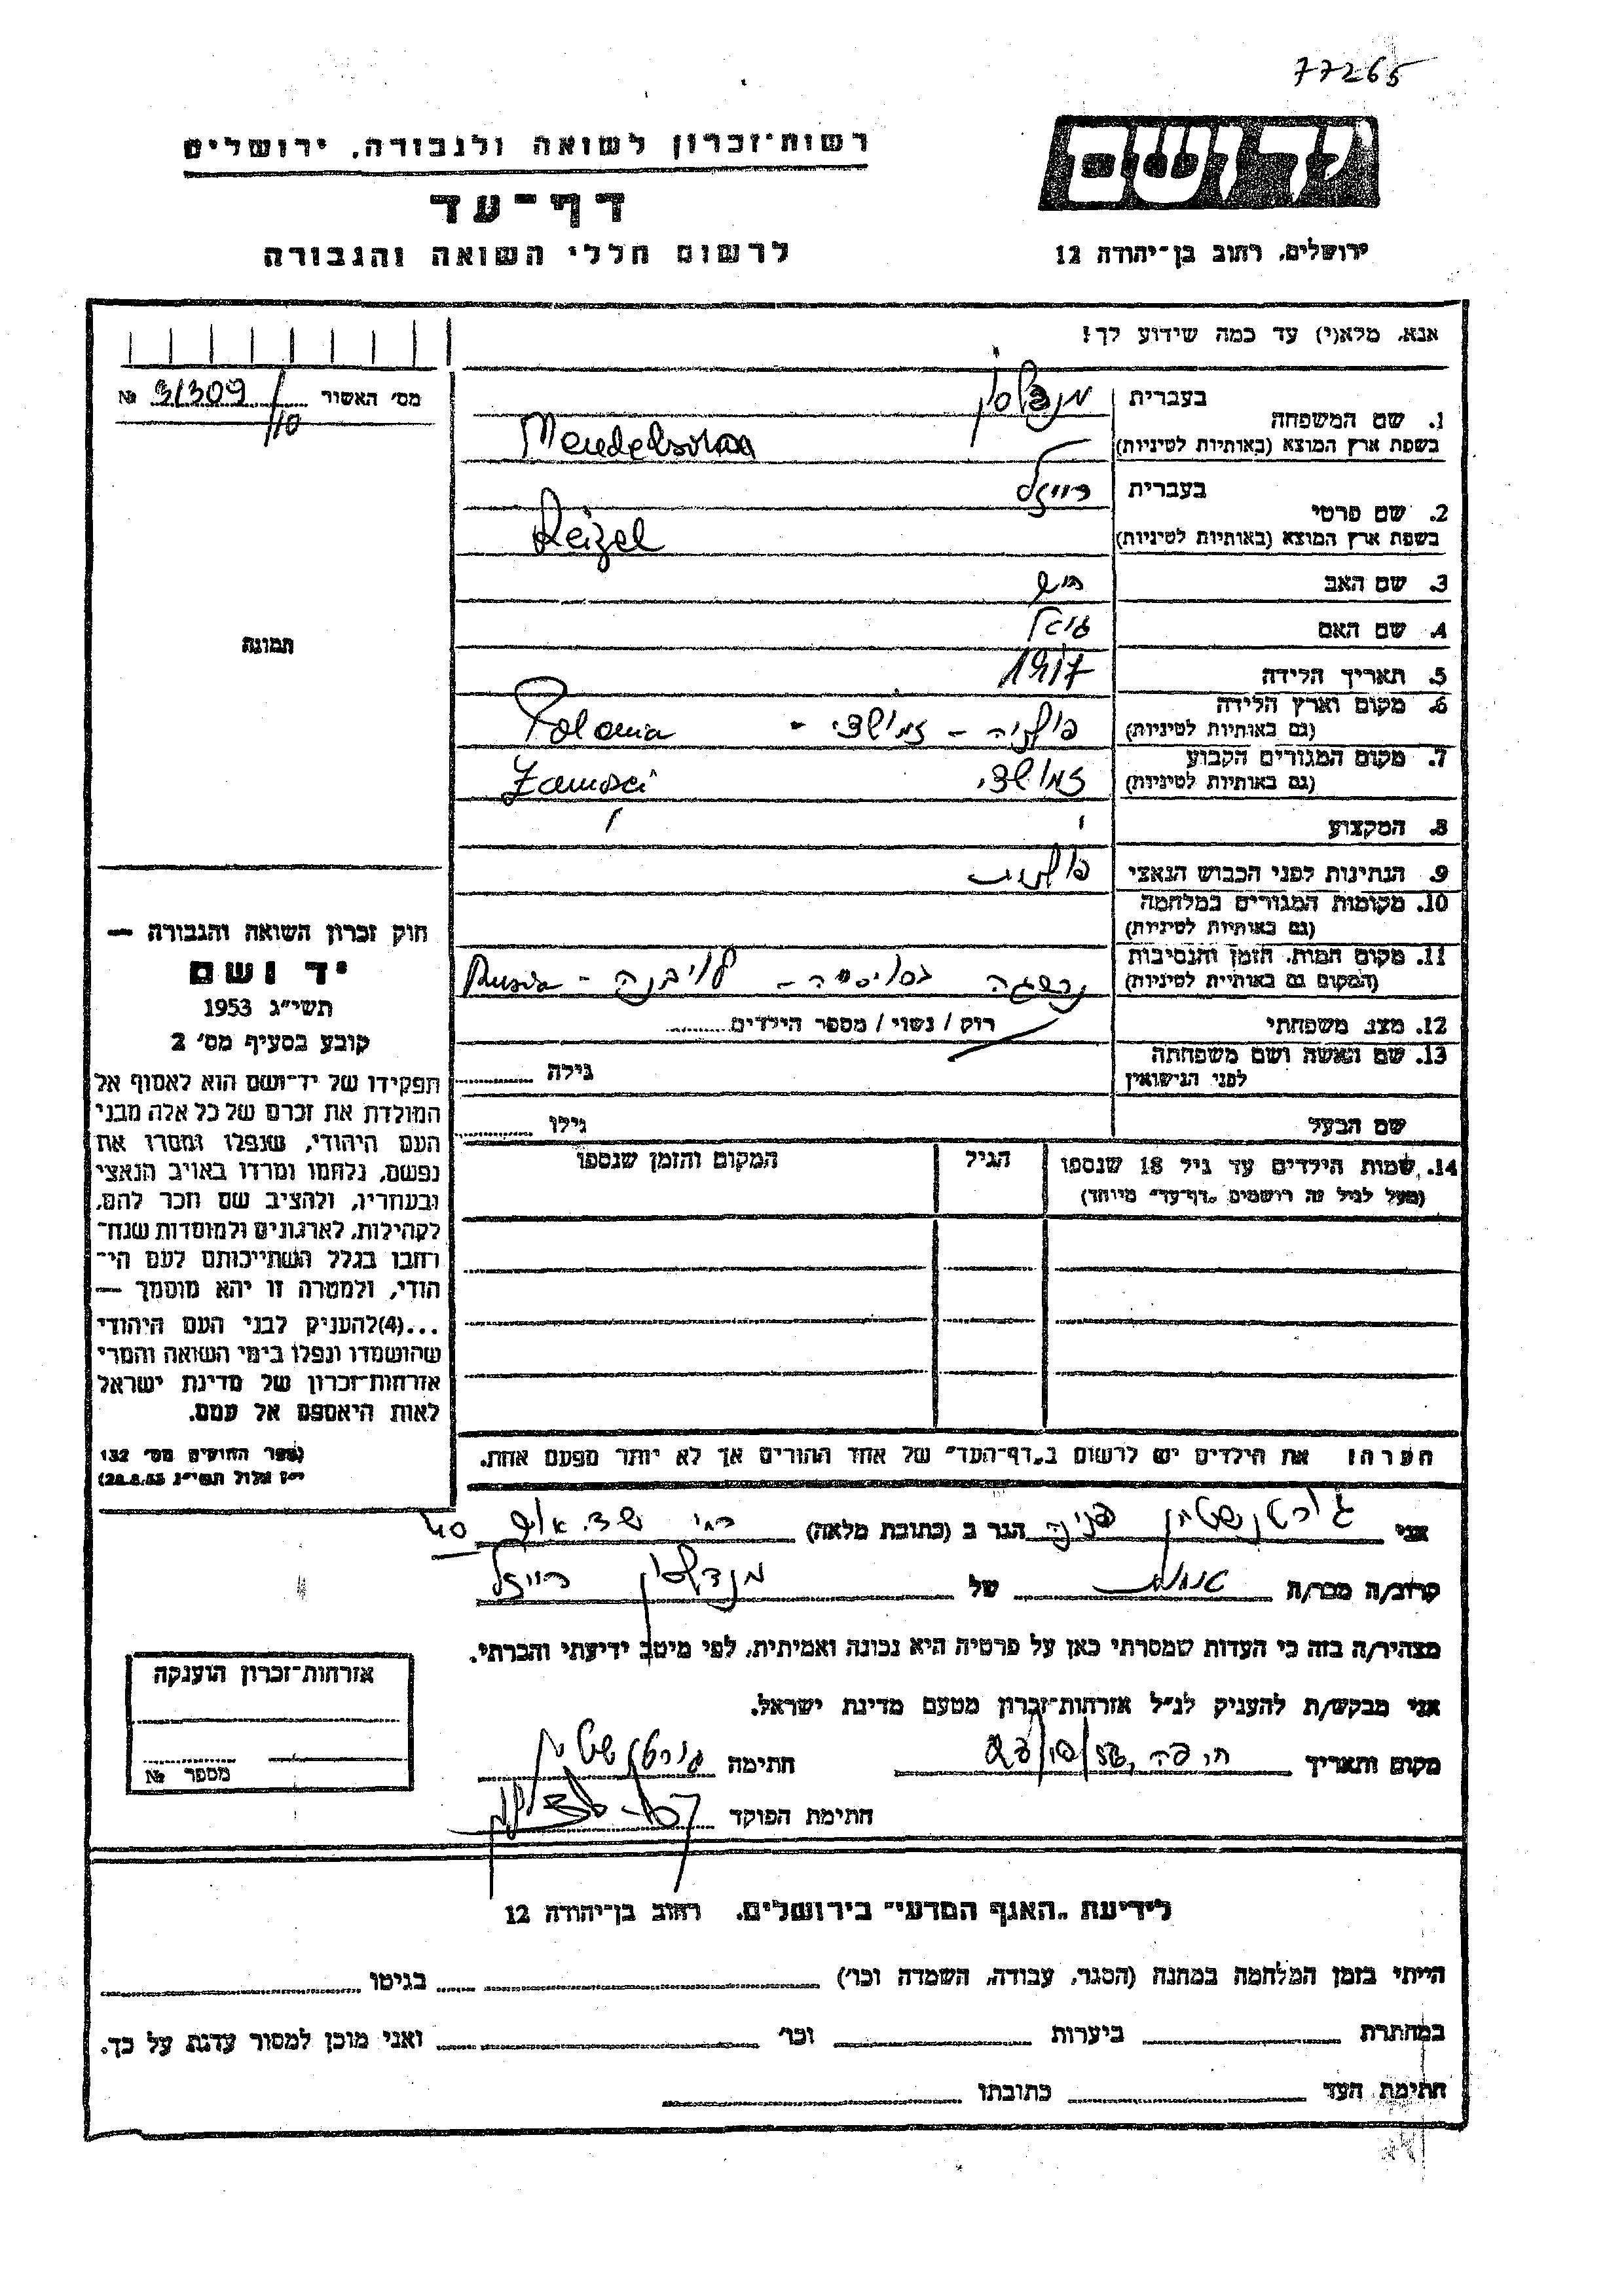 77265
יד ושם
רשות־זכרון לשואה ולגבורה, ירושלים
דף־עד
לרשום חללי השואה והגבורה
ירושלים, רחוב בן־יהודה 12
אנא, מלא(י) עד כמה שידוע לך!
מס׳ האשור № 31309/110
תמונה
1. שם המשפחה
בעברית מנדלסון
בשפת ארץ המוצא (באותיות לטיניות)
2. שם פרטי
בעברית רייזל
בשפת ארץ המוצא (באותיות לטיניות) Reizel
3. שם האב
4. שם האם
5. תאריך הלידה 1917
6. מקום וארץ הלידה
(גם באותיות לטיניות) פולניה - זמושצי - Polonia
7. מקום המגורים הקבוע
(גם באותיות לטיניות) זמושצי
8. המקצוע
9. הנתינות לפני הכבוש הנאצי פולנית
10. מקומות המגורים במלחמה
(גם באותיות לטיניות)
11. מקום המות, הזמן והנסיבות
(המקום גם באותיות לטיניות) נרצחה Rusia
12. מצב משפחתי רוק / נשוי / מספר הילדים
13. שם האשה ושם משפחתה
לפני הנישואין גילה
שם הבעל גילו
14. שמות הילדים עד גיל 18 שנספו הגיל המקום והזמן שנספו
(מעל לגיל זה רושמים „דף־עד״ מיוחד)
חוק זכרון השואה והגבורה —
יד ושם
תשי״ג 1953
קובע בסעיף מס׳ 2
תפקידו של יד־ושם הוא לאסוף אל
המולדת את זכרם של כל אלה מבני
העם היהודי, שנפלו ומסרו את
נפשם, נלחמו ומרדו באויב הנאצי
ובעוזריו, ולהציב שם וזכר להם,
לקהילות, לארגונים ולמוסדות שנח־
רבו בגלל השתייכותם לעם הי־
הודי, ולמטרה זו יהא מוסמך —
...(4)להעניק לבני העם היהודי
שהושמדו ונפלו בימי השואה והמרי
אזרחות־זכרון של מדינת ישראל
לאות היאספם אל עמם.
(ספר החוקים מס׳ 132
י״ז אלול תשי״ג 28.8.53)
הערה: את הילדים יש לרשום ב„דף־העד״ של אחד ההורים אך לא יותר מפעם אחת.
אני גורטנשטיין פניה הגר ב (כתובת מלאה)
קרוב/ה מכר/ה של מנדלסון רייזל
מצהיר/ה בזה כי העדות שמסרתי כאן על פרטיה היא נכונה ואמיתית, לפי מיטב ידיעתי והכרתי.
אני מבקש/ת להעניק לנ״ל אזרחות־זכרון מטעם מדינת ישראל.
מקום ותאריך חיפה, חתימה גורטנשטיין
חתימת הפוקד
אזרחות־זכרון הוענקה
מספר №
לידיעת „האגף המדעי״ בירושלים, רחוב בן־יהודה 12
הייתי בזמן המלחמה במחנה (הסגר, עבודה, השמדה וכו׳) בגיטו
במחתרת ביערות וכו׳ ואני מוכן למסור עדות על כך.
חתימת העד כתובתו